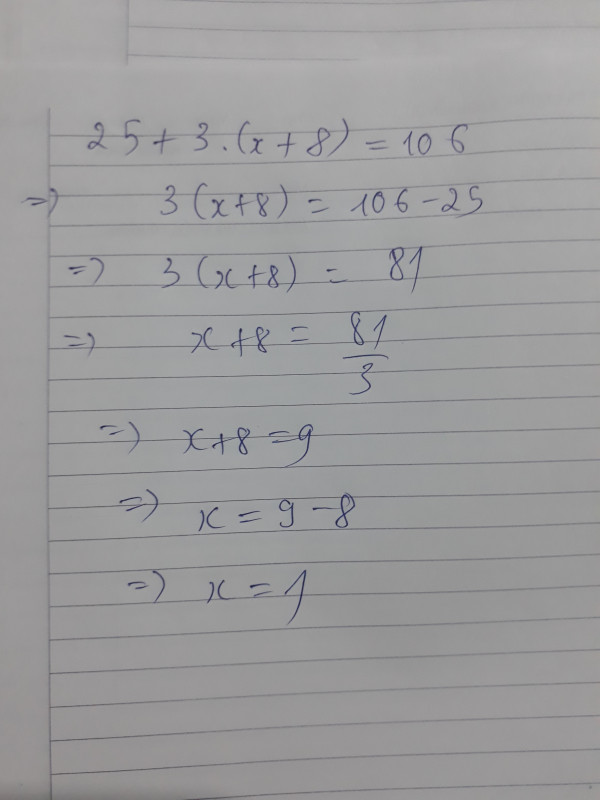 25 + 3.(x + 8) = 106
=) 3(x+8) = 106 - 25
=) 3(x+8) = 81
=) x+8 = 81/3
=) x+8 = 9
=) x = 9 - 8
=) x = 1